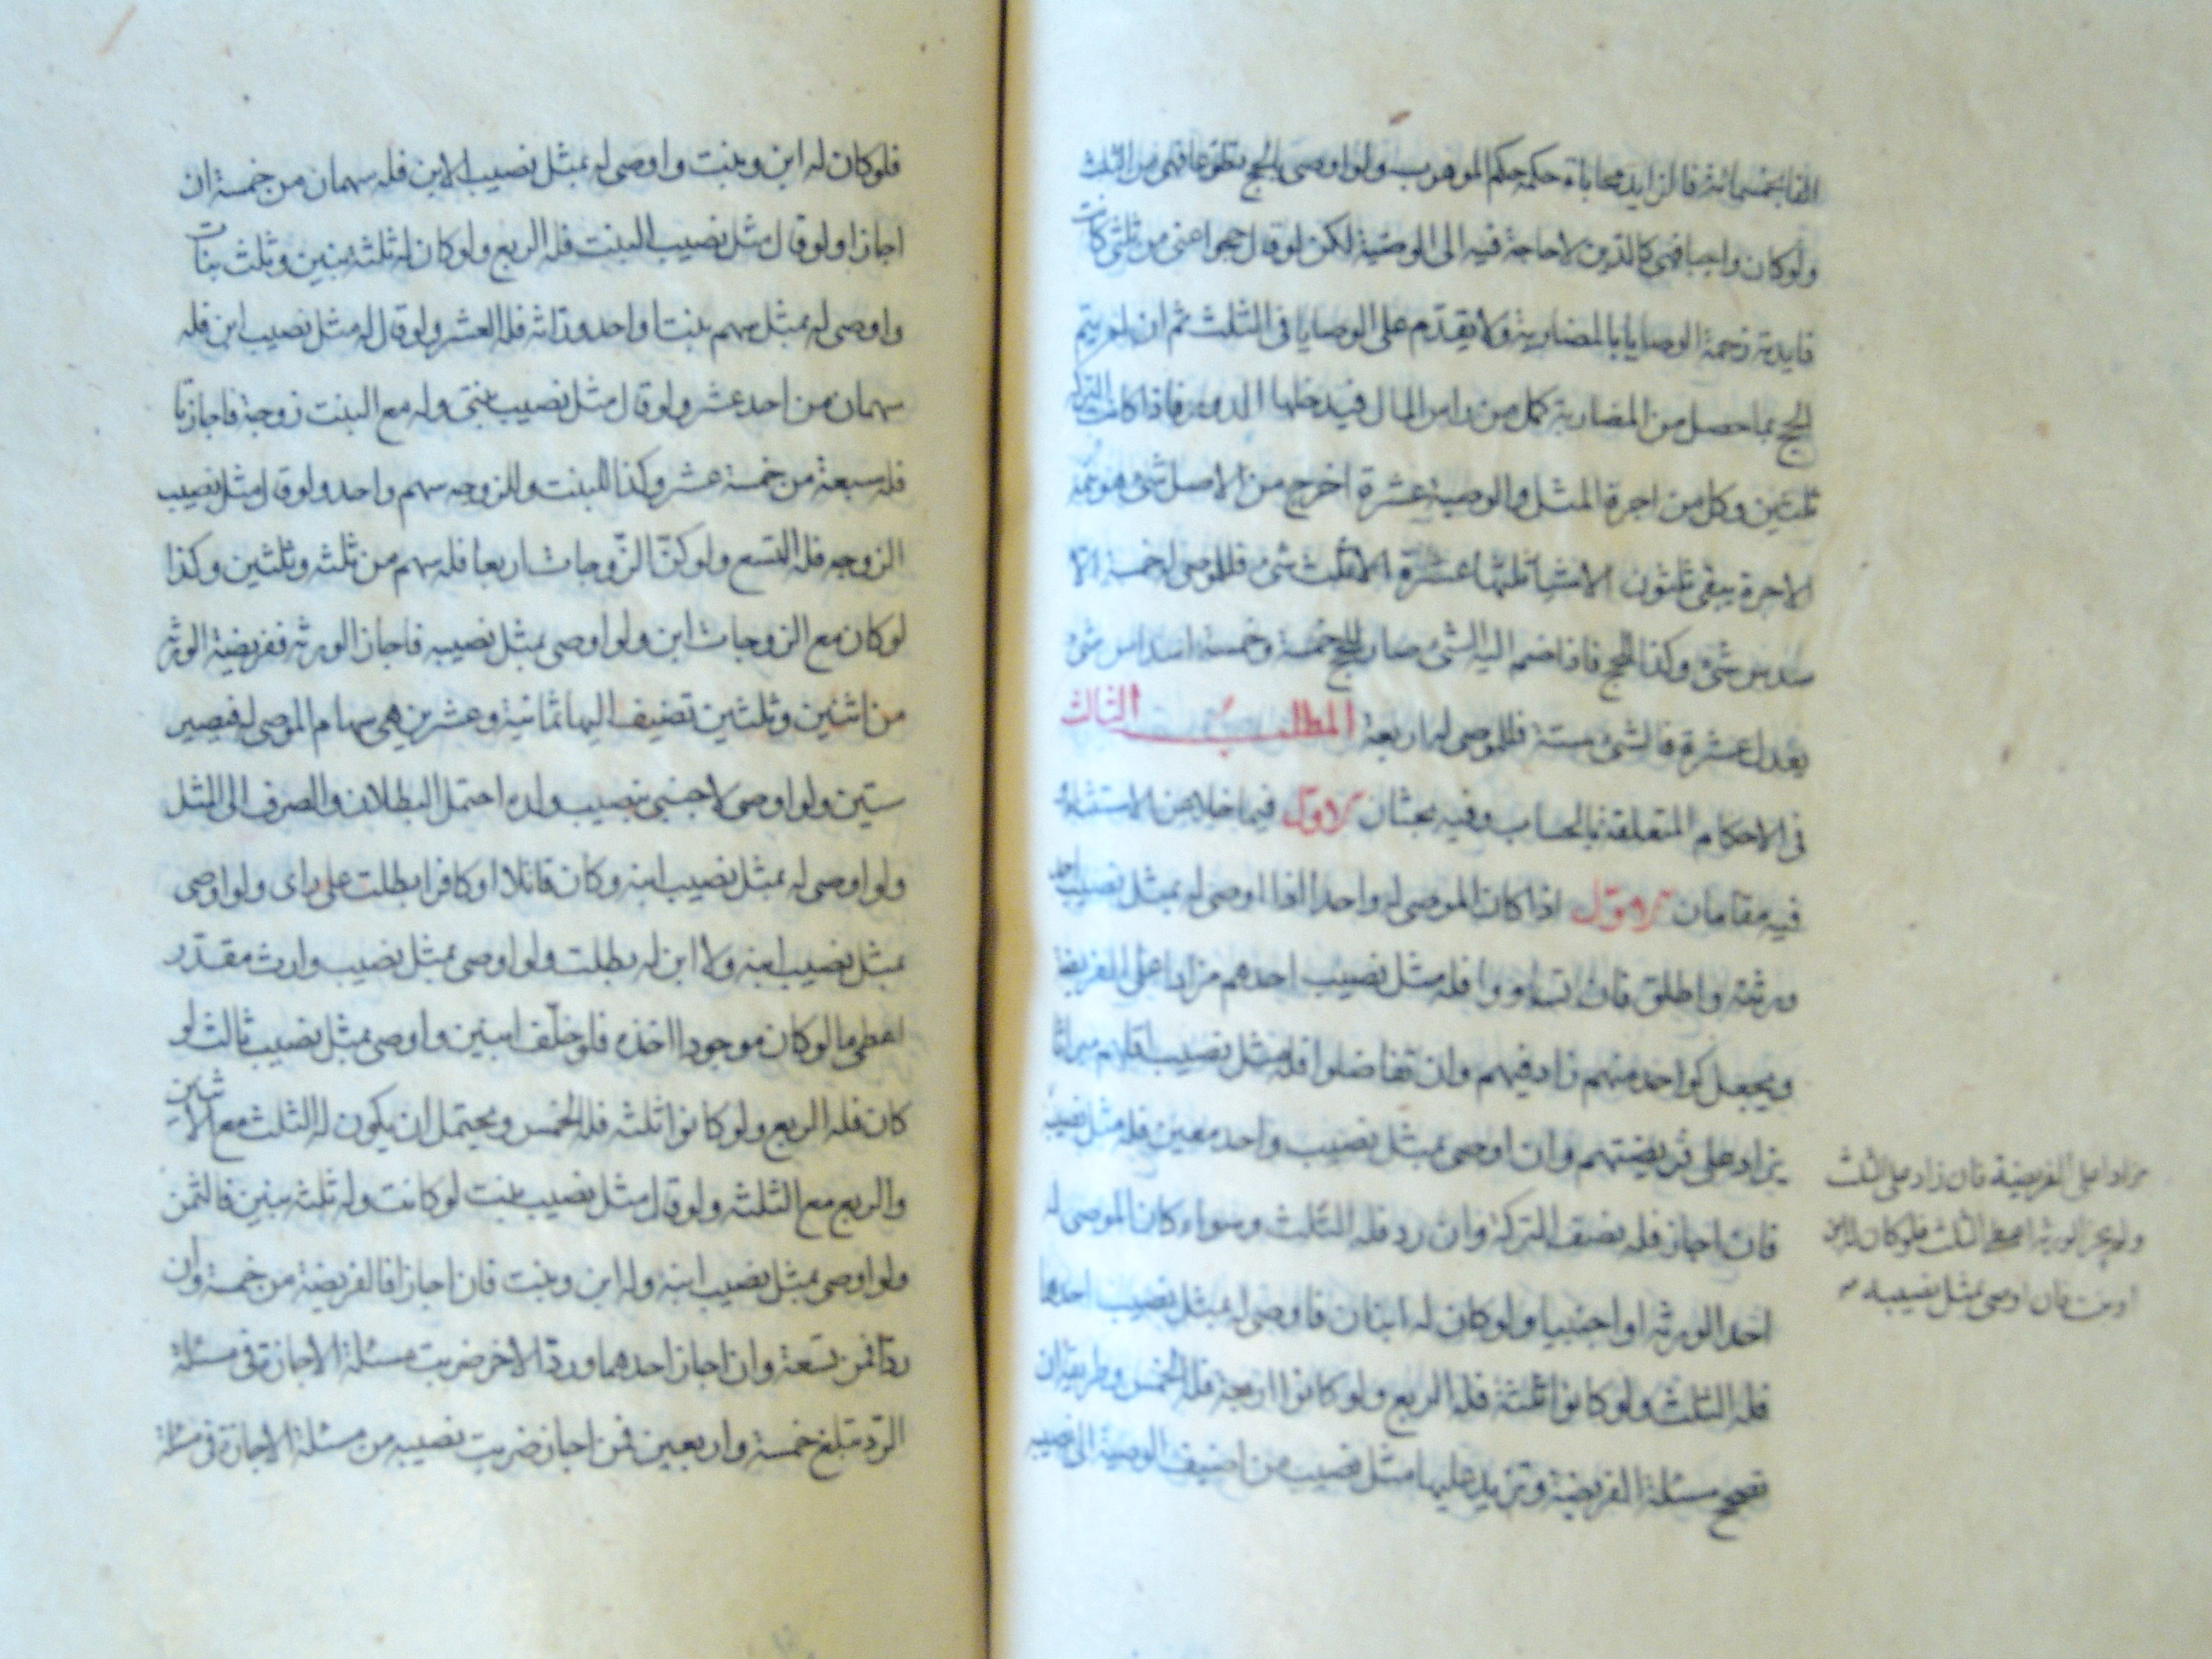 الفا بخمسمائة فالزايد محاباة حكمه حكم الموهوب ولو اوصى بالحج تطوعا فهى من الثلث
ولو كان واجبا فهى كالدين لا حاجة فيه الى الوصية لكن لو قال حجوا عنى من ثلثى كانت
فايدته زحمة الوصايا بالمضاربة ولا يقدم على الوصايا فى الثلث ثم ان لم يتم
الحج بما حصل من المضاربة كمل من راس المال فيدخلها الدور فاذا كانت التركة
ثلثين وكل من اجرة المثل والوصية عشرة اخرج من الاصل شئ هو تتمة
الاجرة يبقى ثلثون الا شيئا ثلثها عشرة الا ثلث شئ فللموصى له خمسة الا
سدس شئ وكذا للحج فاذا ضم اليه الشئ صار للحج خمسة وخمسة اسداس شئ
يعدل عشرة فالشئ ستة فللموصى له اربعة المطلب الثالث
فى الاحكام المتعلقة بالحساب وفيه بحثان الاول فيما خلا عن الاستثناء
فيه مقامان الاول اذا كان الموصى له واحدا اذا اوصى له بمثل نصيب احد
ورثته واطلق فان تساووا فله مثل نصيب احدهم مزادا على الفريضة
ويجعل كواحد منهم زاد فيهم وان تفاضلوا فله مثل نصيب اقلهم ميراثا
يزاد على فريضتهم وان اوصى بمثل نصيب واحد معين فله مثل نصيبه
مزادا على الفريضة فان زاد على الثلث
ولم يجز الورثة اعطى الثلث فلو كان له ابن
او بنت فان اوصى بمثل نصيبه
فان اجاز فله نصف التركة وان رد فله الثلث وسواء كان الموصى له
احد الورثه او اجنبيا ولو كان له ابنان فاوصى له بمثل نصيب احدهما
فله الثلث ولو كانوا ثلثة فله الربع ولو كانوا اربعة فله الخمس وطريقه ان
تصحح مسئلة الفريضة وتزيد عليها مثل نصيب من اضيف الوصية الى نصيبه
فلو كان له ابن وبنت واوصى له بمثل نصيب الابن فله سهمان من خمسة ان
اجازا ولو قال مثل نصيب البنت فله الربع ولو كان له ثلثه بنين وثلث بنات
واوصى له بمثل سهم بنت او احد وراثه فله العشر ولو قال له مثل نصيب ابن فله
سهمان من احد عشر ولو قال مثل نصيب بنتى وله مع البنت زوجة فاجازتا
فله سبعة من خمسة عشر وكذا للبنت وللزوجه سهم واحد ولو قال مثل نصيب
الزوجه فله التسع ولو كنّ الزّوجات اربعا فله سهم من ثلثه وثلثين وكذا
لو كان مع الزوجات ابن ولو اوصى بمثل نصيبه فاجاز الورثه ففريضة الورثه
من اثنين وثلثين تضيف اليها ثمانية وعشرين هى سهام الموصى له فيصير
ستين ولو اوصى لاجنبى بنصيب ولده احتمل البطلان والصرف الى المثل
ولو اوصى له بمثل نصيب ابنه وكان قاتلا او كافرا بطلت على راى ولو اوصى
بمثل نصيب ابنه ولا ابن له بطلت ولو اوصى بمثل نصيب وارث مقدّر
اعطى ما لو كان موجودا اخذه فلو خلّف ابنين واوصى بمثل نصيب ثالث لو
كان فله الربع ولو كانوا ثلثه فله الخمس ويحتمل ان يكون له الثلث مع الاثنين
والربع مع الثلثه ولو قال مثل نصيب بنت لو كانت وله ثلثة بنين فالثمن
ولو اوصى بمثل نصيب ابنه وله ابن وبنت فان اجازا فالفريضة من خمسة وان
ردّا فمن تسعة وان اجاز احدهما وردّ الاخر ضربت مسئلة الاجازة فى مسئلة
الرّد تبلغ خمسة واربعين فمن اجاز ضربت نصيبه من مسئلة الاجازة فى مسئلة